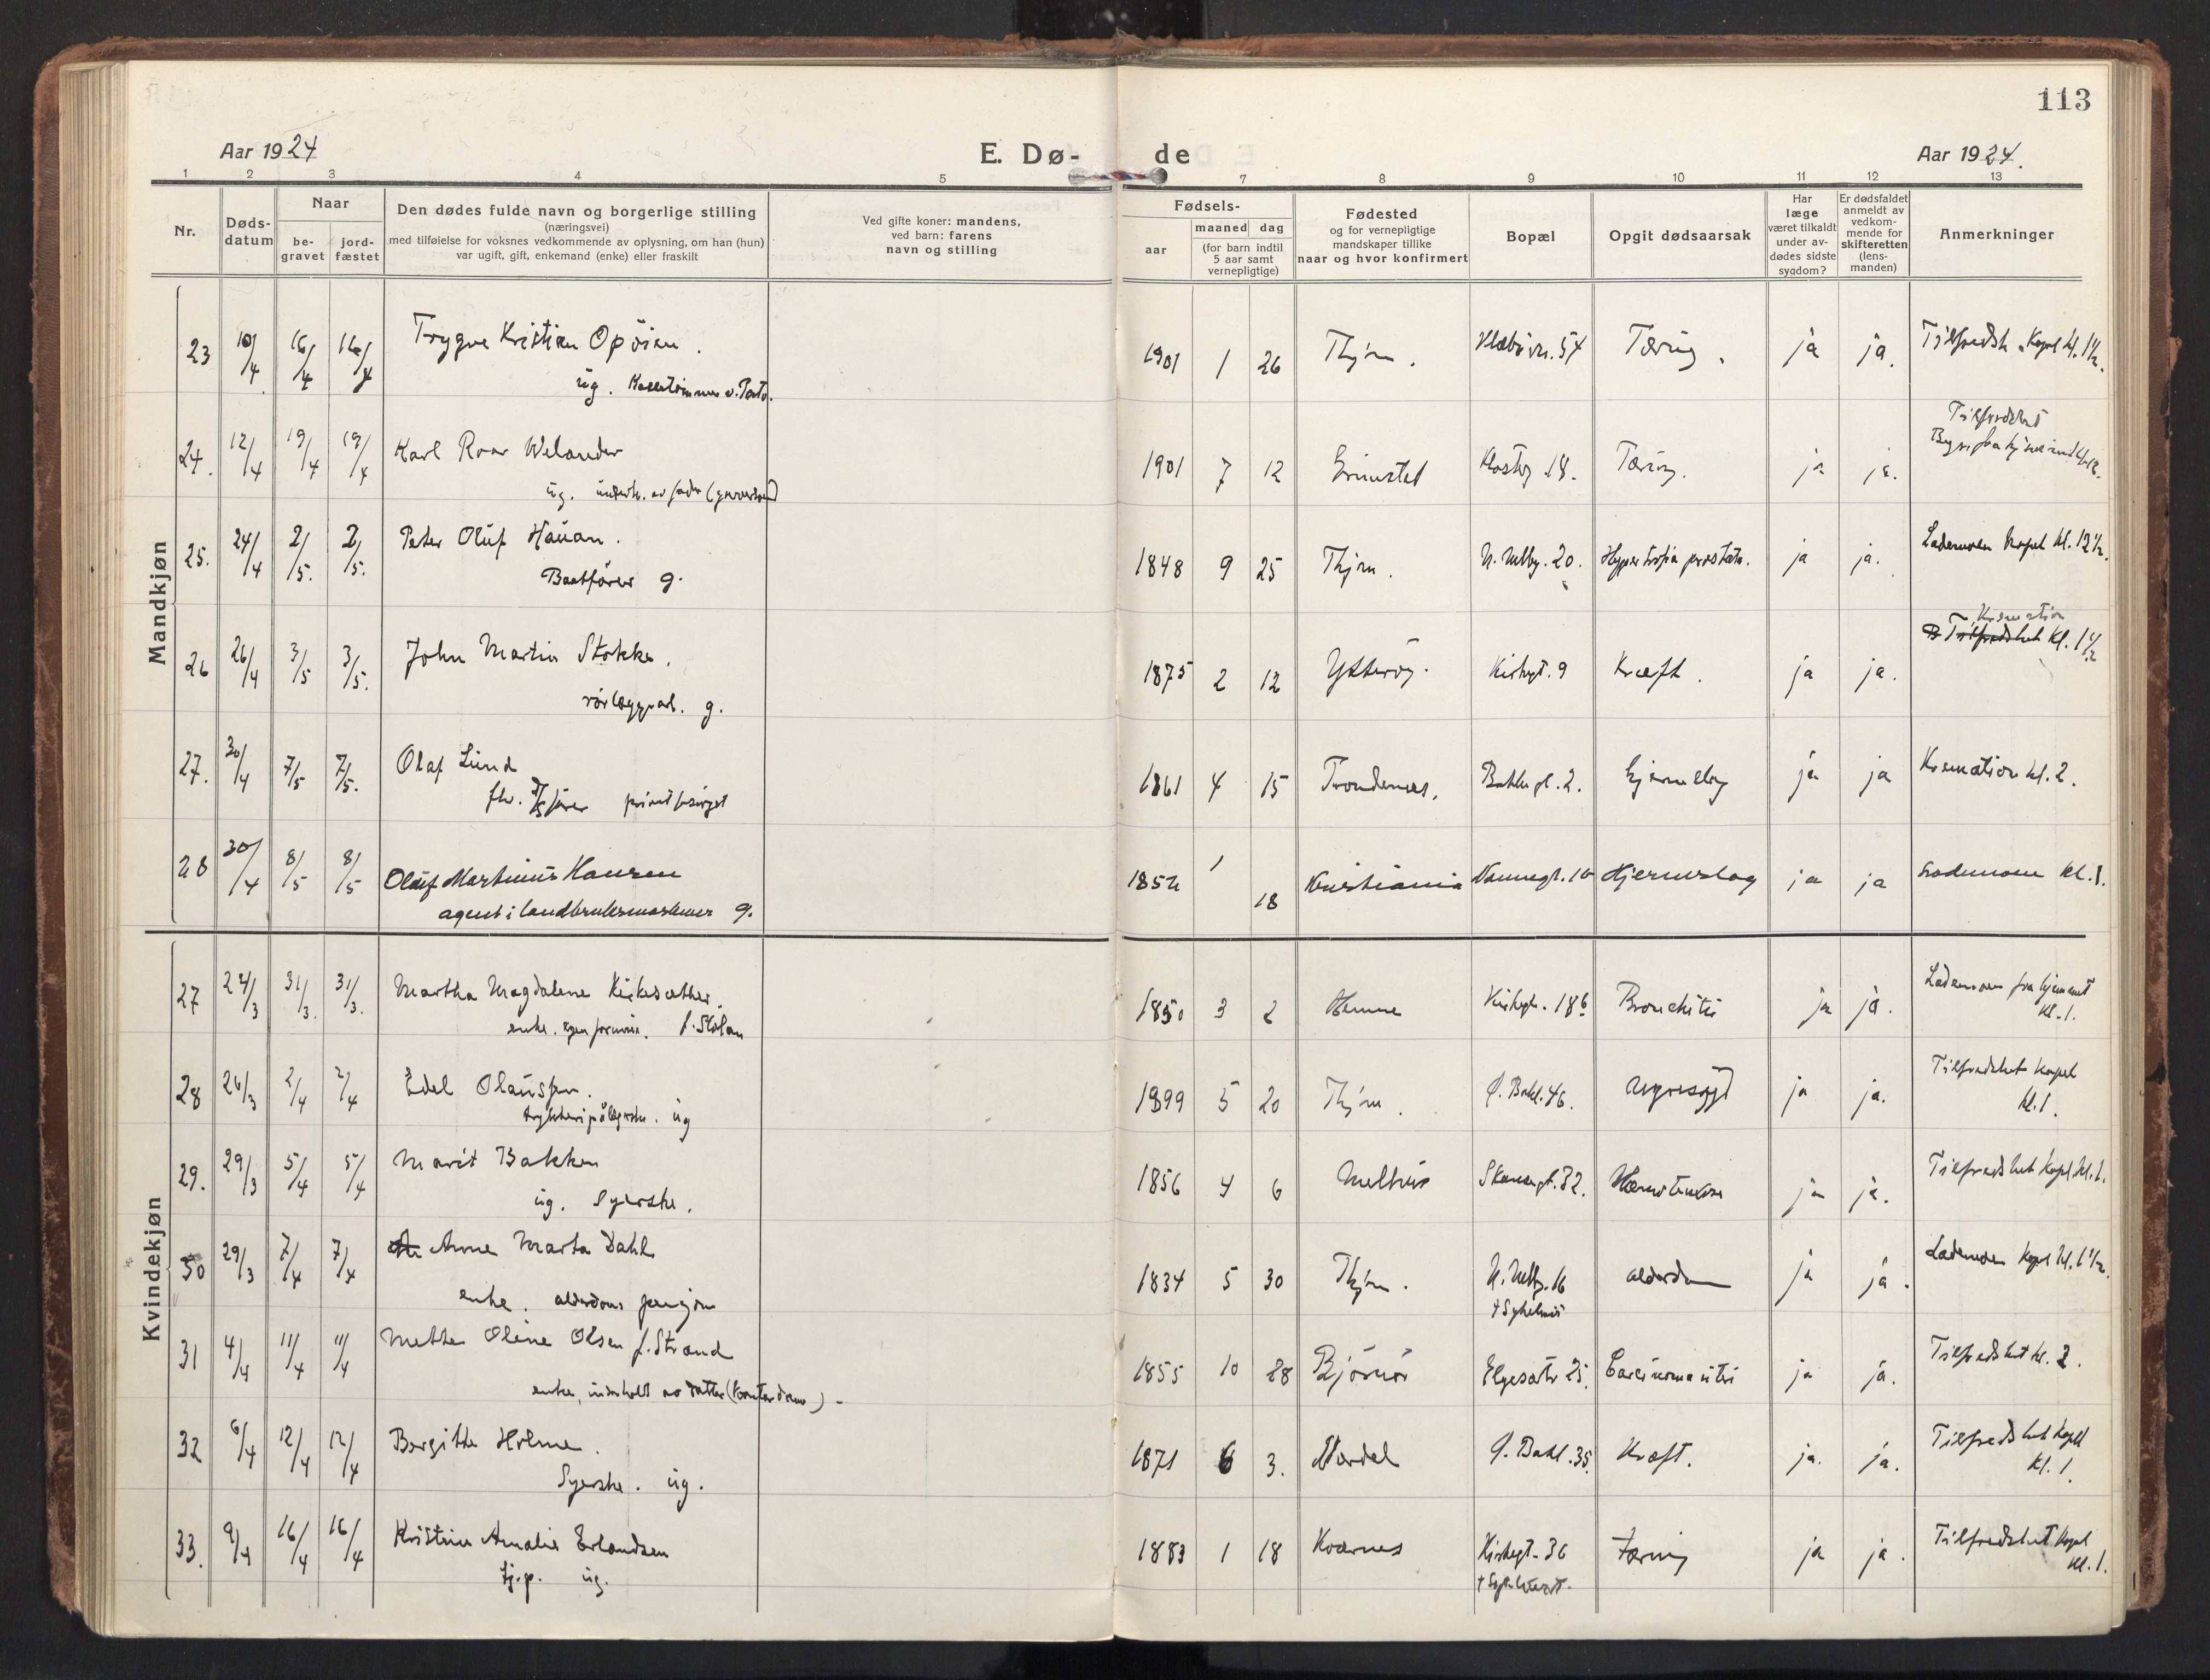 113
Aar 1924
E. Dø-
de
Aar 1924.
1 2 3 4 5 7 8 9 10 11 12 13
Nr.
Døds-
datum
Naar
be-
gravet
jord-
fæstet
Den dødes fulde navn og borgerlige stilling
(næringsvei)
med tilføielse for voksnes vedkommende av oplysning, om han (hun)
var ugift, gift, enkemand (enke) eller fraskilt
Ved gifte koner: mandens,
ved barn: farens
navn og stilling
Fødsels-
aar
maaned dag
(for barn indtil
5 aar samt
vernepligtige)
Fødested
og for vernepligtige
mandskaper tillike
naar og hvor konfirmert
Bopæl
Opgit dødsaarsak
Har
læge
været tilkaldt
under av-
dødes sidste
sygdom?
Er dødsfaldet
anmeldt av
vedkom-
mende for
skifteretten
(lens-
manden)
Anmerkninger
Mandkjøn
23 10/4 16/4 16/4 Trygve Kristian Opöien. 1901 1 26 Thjm. 54 Tæring. ja ja. Kapel kl. 1½.
ug.
24. 12/4 19/4 19/4 Karl Roar Welander 1901 7 12 Grimstad Klosterg. 18. Tæring. ja ja. Tilfredshet
ug. underh. av fader
25. 24/4 2/5. 2/5. Peter Oluf Hauan. 1848 9 25 Thjm. N. Møllbg. 20. Hypertrofia prostata. ja ja. Lademoen kapel kl. 12½.
Baatförer g.
26 26/4 3/5 3/5. John Martin Stokke. 1875 2 12 Ytteröy. Kirkegt. 9 Kræft. ja ja. Kremation
Tilfredshet kl. 1½
rörlæggerarb. g.
27. 30/4 7/5 7/5. Olaf Lund 1861 4 15 Trondenes. Bakkegt. 2. Hjerneslag ja ja Kremation kl. 2.
fhv. D/S förer privat forsörget
28 30/4 8/5 8/5 Oluf Martinius Hansen 1852 1 18 Kristiania Nannegt. 10 Hjerneslag ja ja Lademoen kl. 1.
agent i landbruksmaskiner g.
Kvindekjøn
27 24/3 31/3. 31/3. Martha Magdalene Kirkesæther. 1850 3 2 Hemne Kirkegt. 18b Bronchitis ja ja. Lademoen fra hjemmet
kl. 1.
enke. egen formue. f. Stölan
28 26/3 2/4 2/4 Edel Olaussen. 1899 5 20 Thjm. Ö. Bakl. 46. Nyresygd ja ja. Tilfredshet kapel
kl. 1.
trykkeripålegerske. ug
29. 29/3 5/4 5/4 Marit Bakken 1856 4 6 Melhus Skansegt. 32. ja ja. Tilfredshet Kapel kl. 1.
ug. Syerske.
30 29/3 7/4 7/4 Anne Marta Dahl 1834 5 30 Thjm. N. Møllbg. 16 alderdom ja ja. Lademoen Kapel kl. 1½.
enke. alderdoms pensjon
† Sykehus
31 4/4 11/4 11/4 Mette Oline Olsen f. Strand 1855 10 28 Björnör Elgesætr 25. Carcinoma uteri ja ja. Tilfredshet kl. 2.
enke, underholdt av datter (kontordame).
32 6/4 12/4 12/4 Bergitte Holme. 1871 6 3. Ö. Bakl. 35. Kræft. ja. ja. Tilfredshet Kapel
kl. 1.
Syerske. ug.
33. 9/4 16/4 16/4 Kristine Amalie Erlandsen 1883 1 18 Kværnes Kirkegt. 36 Tæring ja ja. Tilfredshet Kapel
kl. 1.
tj.p. ug.